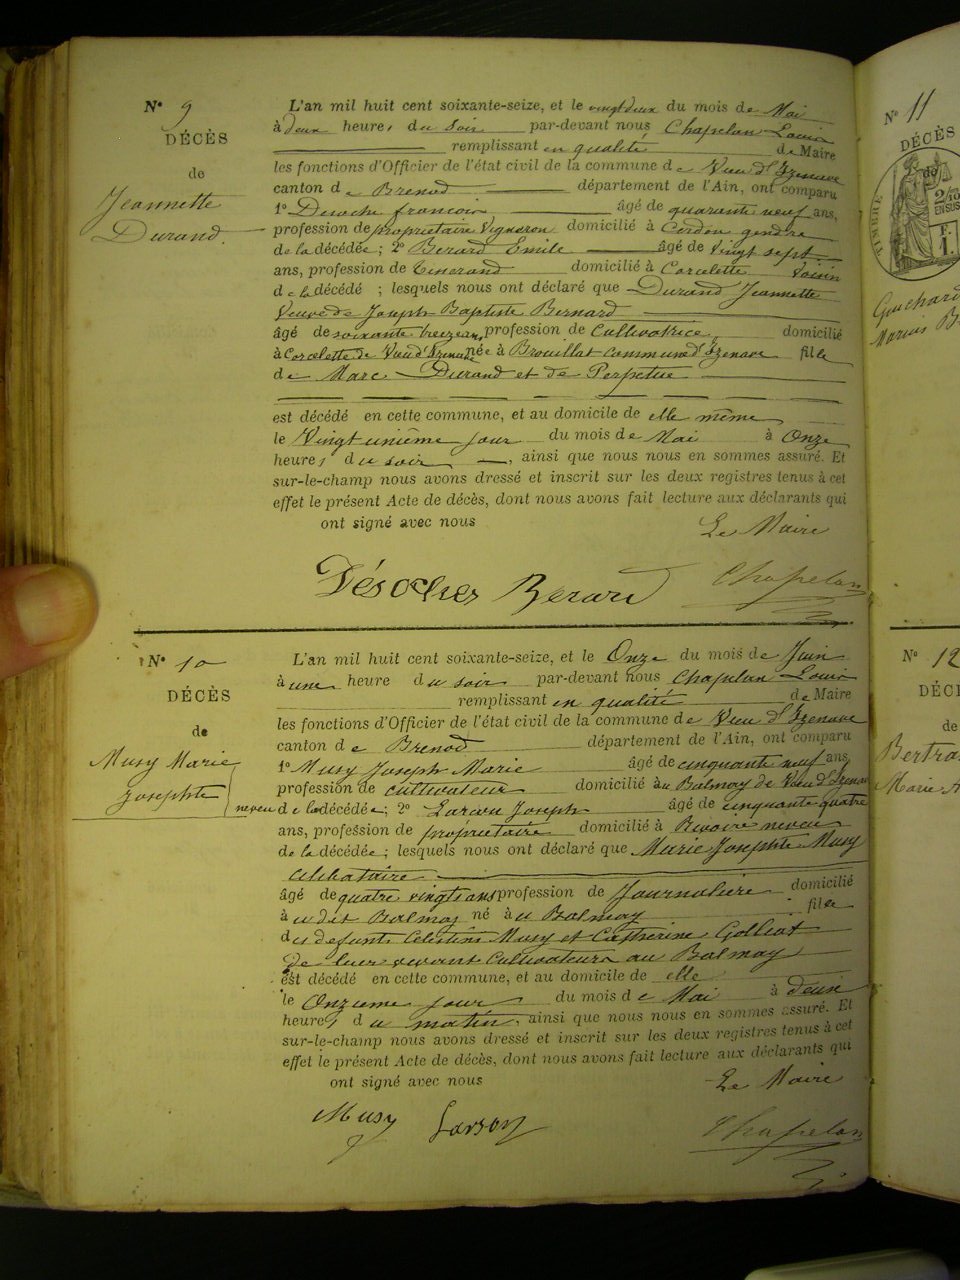 N° 9
DÉCÈS
de
Jeannette
Durand
L'an mil huit cent soixante-seize, et le vingt deux du mois de Mai
à deux heures du Soir par-devant nous Chapelan Louis
remplissant en qualité de Maire
les fonctions d'Officier de l'état civil de la commune de Vieu d'Izenave
canton de Brenod département de l'Ain, ont comparu
1° Deroche francois, âgé de quarante neuf ans,
profession de propriétaire Vigneron domicilié à Cerdon gendre
de la décédée ; 2° Berard Emile âgé de Vingt sept
ans, profession de Tisserand domicilié à Corcelette Voisin
de la décédé ; lesquels nous ont déclaré que Durand Jeannette
Veuve de Joseph Baptiste Bernard
âgé de soixante treize ans, profession de Cultivatrice domicilié
à Corcelette de Vieu d'Izenave née à Brouillat commune d'Izenave fille
de Marc Durand et de Perpetue
est décédé en cette commune, et au domicile de elle même
le Vingt unième jour du mois de Mai à Onze
heures du soir, ainsi que nous nous en sommes assuré. Et
sur-le-champ nous avons dressé et inscrit sur les deux registres tenus à cet
effet le présent Acte de décès, dont nous avons fait lecture aux déclarants qui
ont signé avec nous
Le Maire
Désoches Berard Chapelan
N° 10
DÉCÈS
de
Musy Marie
Josephte
L'an mil huit cent soixante-seize, et le Onze du mois de Juin
à une heure du soir par-devant nous Chapelan Louis
remplissant en qualité de Maire
les fonctions d'Officier de l'état civil de la commune de Vieu d'Izenave
canton de Brenod département de l'Ain, ont comparu
1° Musy Joseph Marie âgé de cinquante neuf ans,
profession de cultivateur domicilié au Balmay de Vieu d'Izenave
neveu de la décédée ; 2° Larson Joseph âgé de cinquante quatre
ans, profession de propriétaire domicilié à Rivoire neveu
de la décédée ; lesquels nous ont déclaré que Marie Josephte Musy
célibataire
âgé de quatre vingts ans profession de Journalière domicilié
à u dit Balmay né à u Balmay fille
des defunts Celestin Musy et Catherine Golliat
de leur vivant Cultivateurs au Balmay
est décédé en cette commune, et au domicile de elle
le Onzieme jour du mois de Mai à deux
heures du matin, ainsi que nous nous en sommes assuré. Et
sur-le-champ nous avons dressé et inscrit sur les deux registres tenus à cet
effet le présent Acte de décès, dont nous avons fait lecture aux déclarants qui
ont signé avec nous
Le Maire
Musy Larson Chapelan
N° 11
DÉCÈS
de
TIMBRE
2/10
EN SUS
F.
1.
Guichard
N° 12
DÉCÈ
de
Bertra
Marie